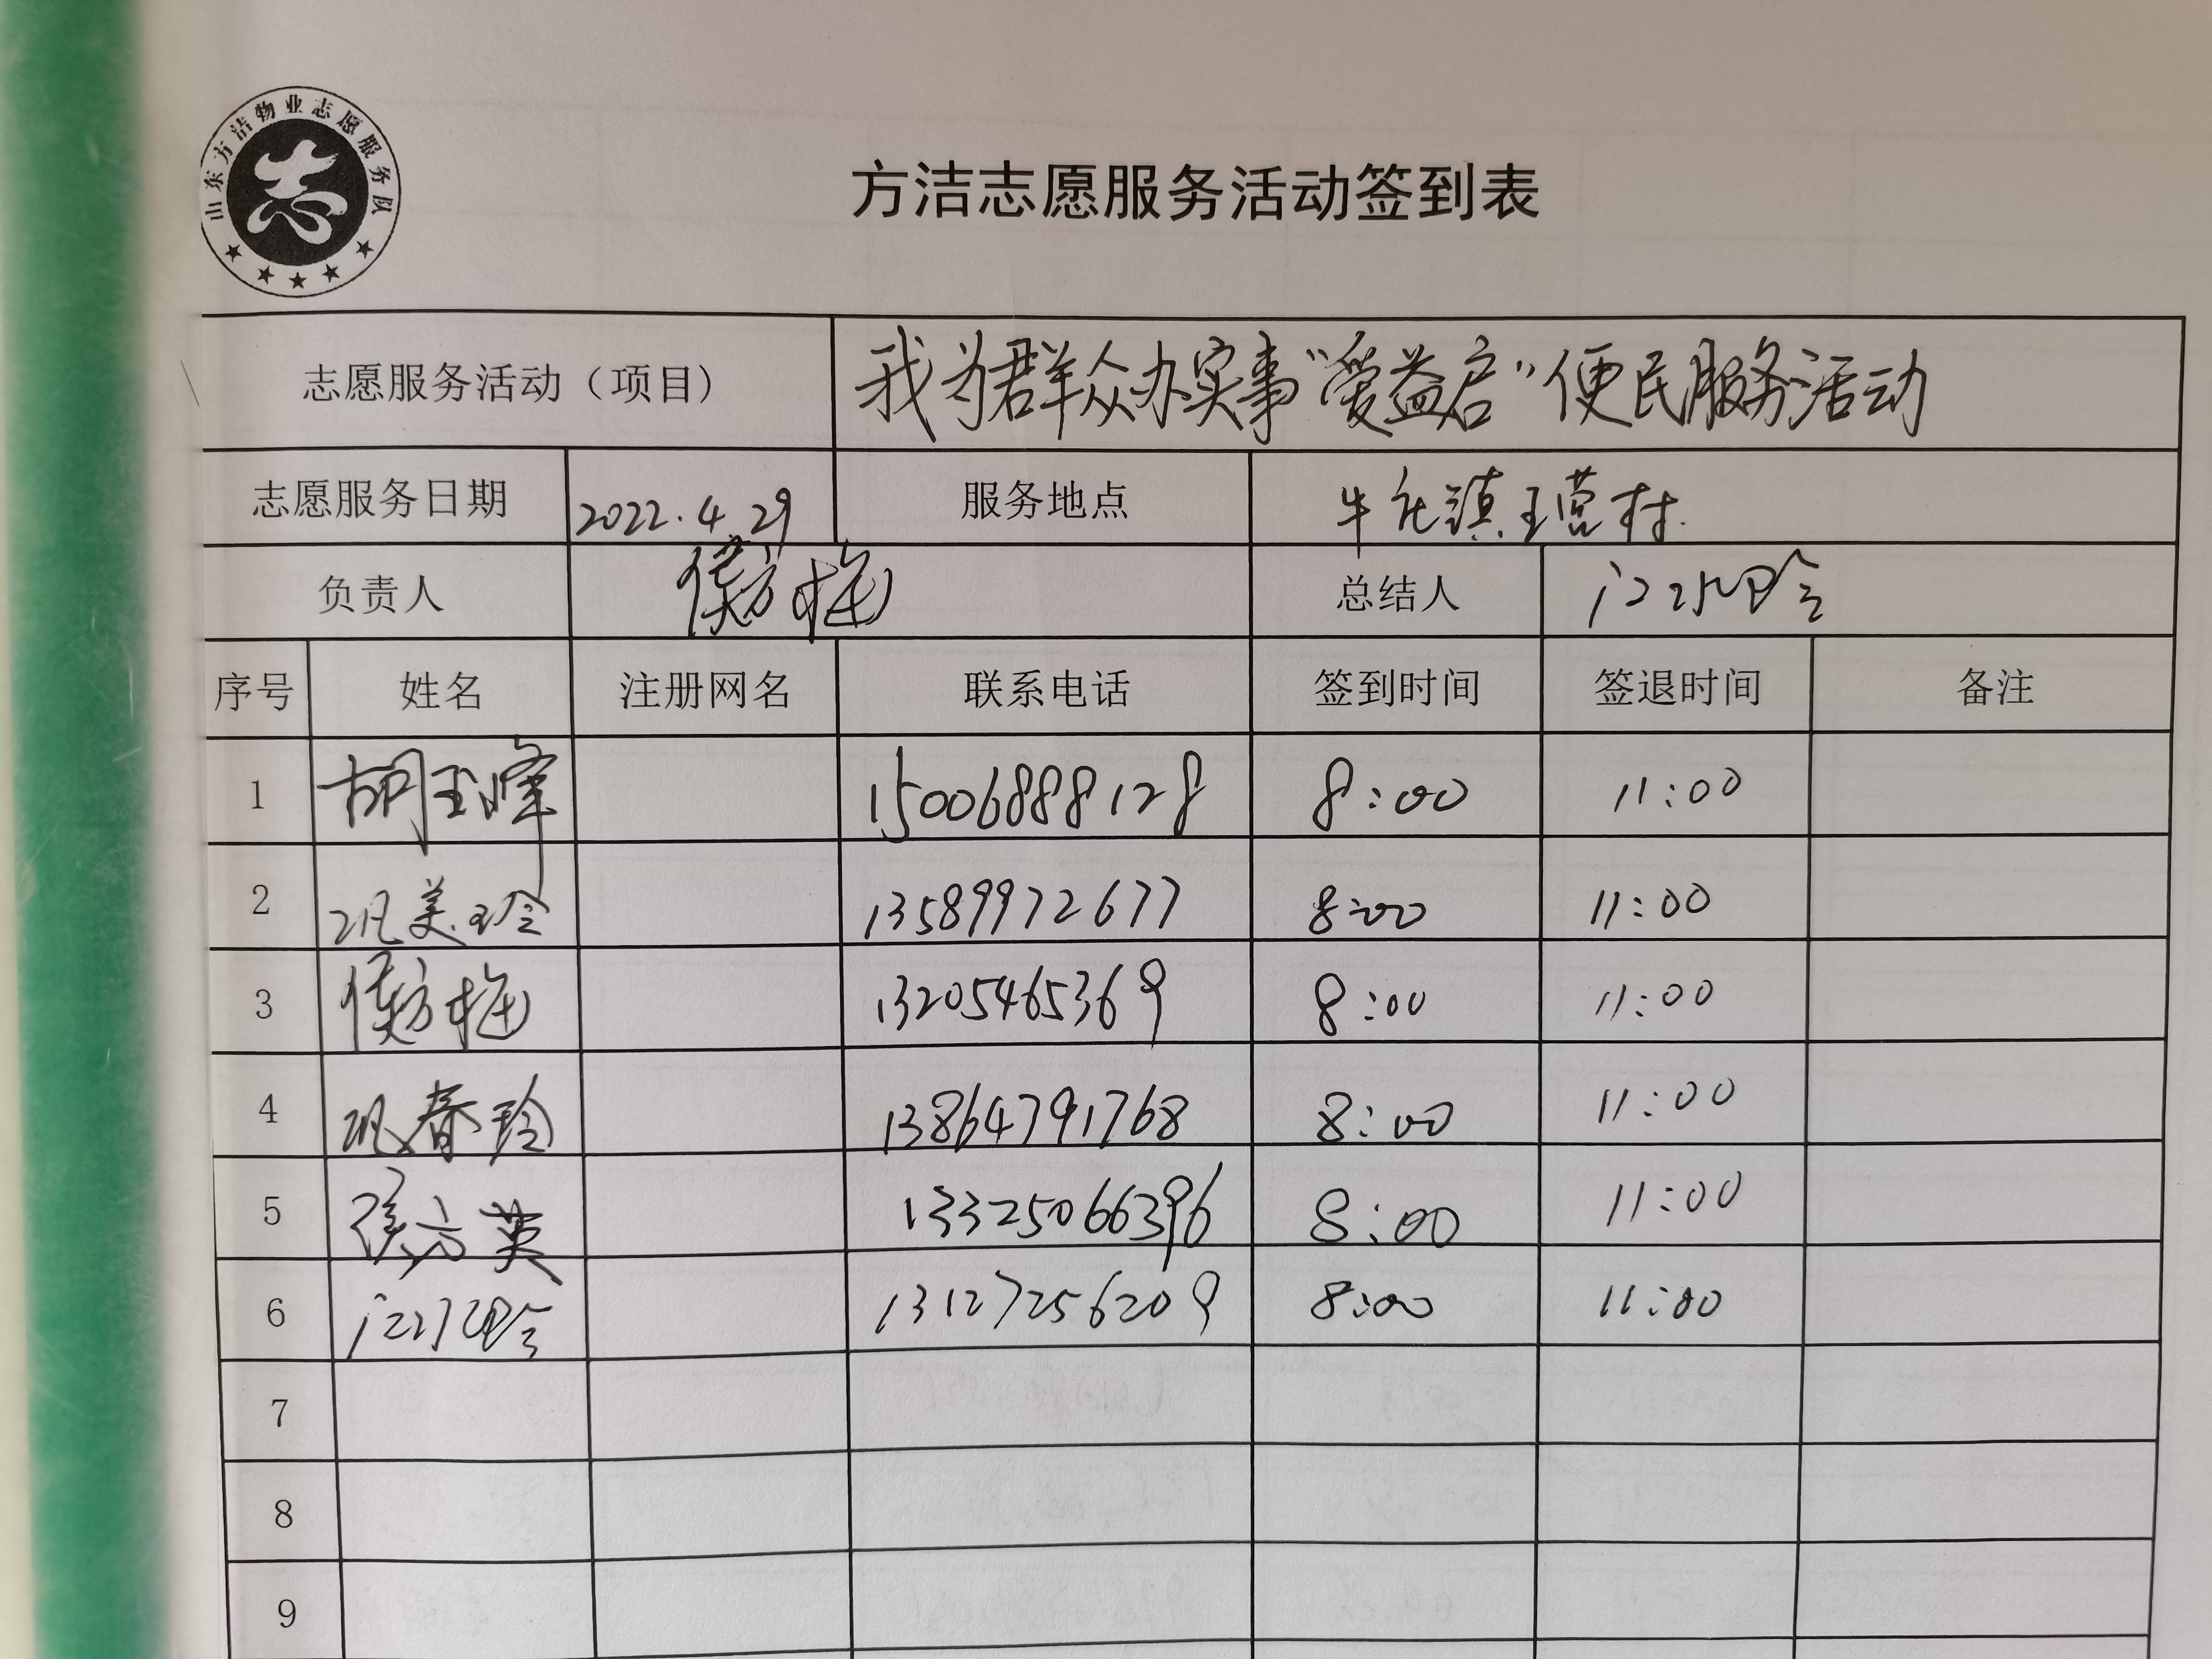 山东方洁物业志愿服务队
志
方洁志愿服务活动签到表
志愿服务活动（项目） 我为群众办实事“爱益启”便民服务活动
志愿服务日期 2022.4.29 服务地点 牛庄镇王营村.
负责人 侯方梅 总结人
序号 姓名 注册网名 联系电话 签到时间 签退时间 备注
1 胡玉峰 15006888128 8:00 11:00
2 巩美玲 13589972677 8:00 11:00
3 侯方梅 13205465369 8:00 11:00
4 巩春玲 13864791768 8:00 11:00
5 侯方英 13325066396 8:00 11:00
6 13127256209 8:00 11:00
7
8
9